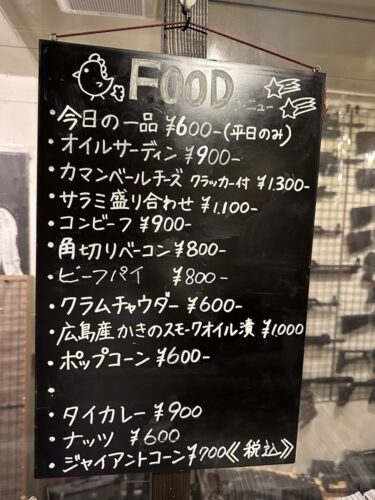 FOOD メニュー
・今日の一品 ¥600-(平日のみ)
・オイルサーディン ¥900-
・カマンベールチーズ クラッカー付 ¥1.300-
・サラミ盛り合わせ ¥1.100-
・コンビーフ ¥900-
・角切りベーコン ¥800-
・ビーフパイ ¥800-
・クラムチャウダー ¥600-
・広島産かきのスモークオイル漬 ¥1.000
・ポップコーン ¥600-
・
・タイカレー ¥900
・ナッツ ¥600
・ジャイアントコーン ¥700《税込》